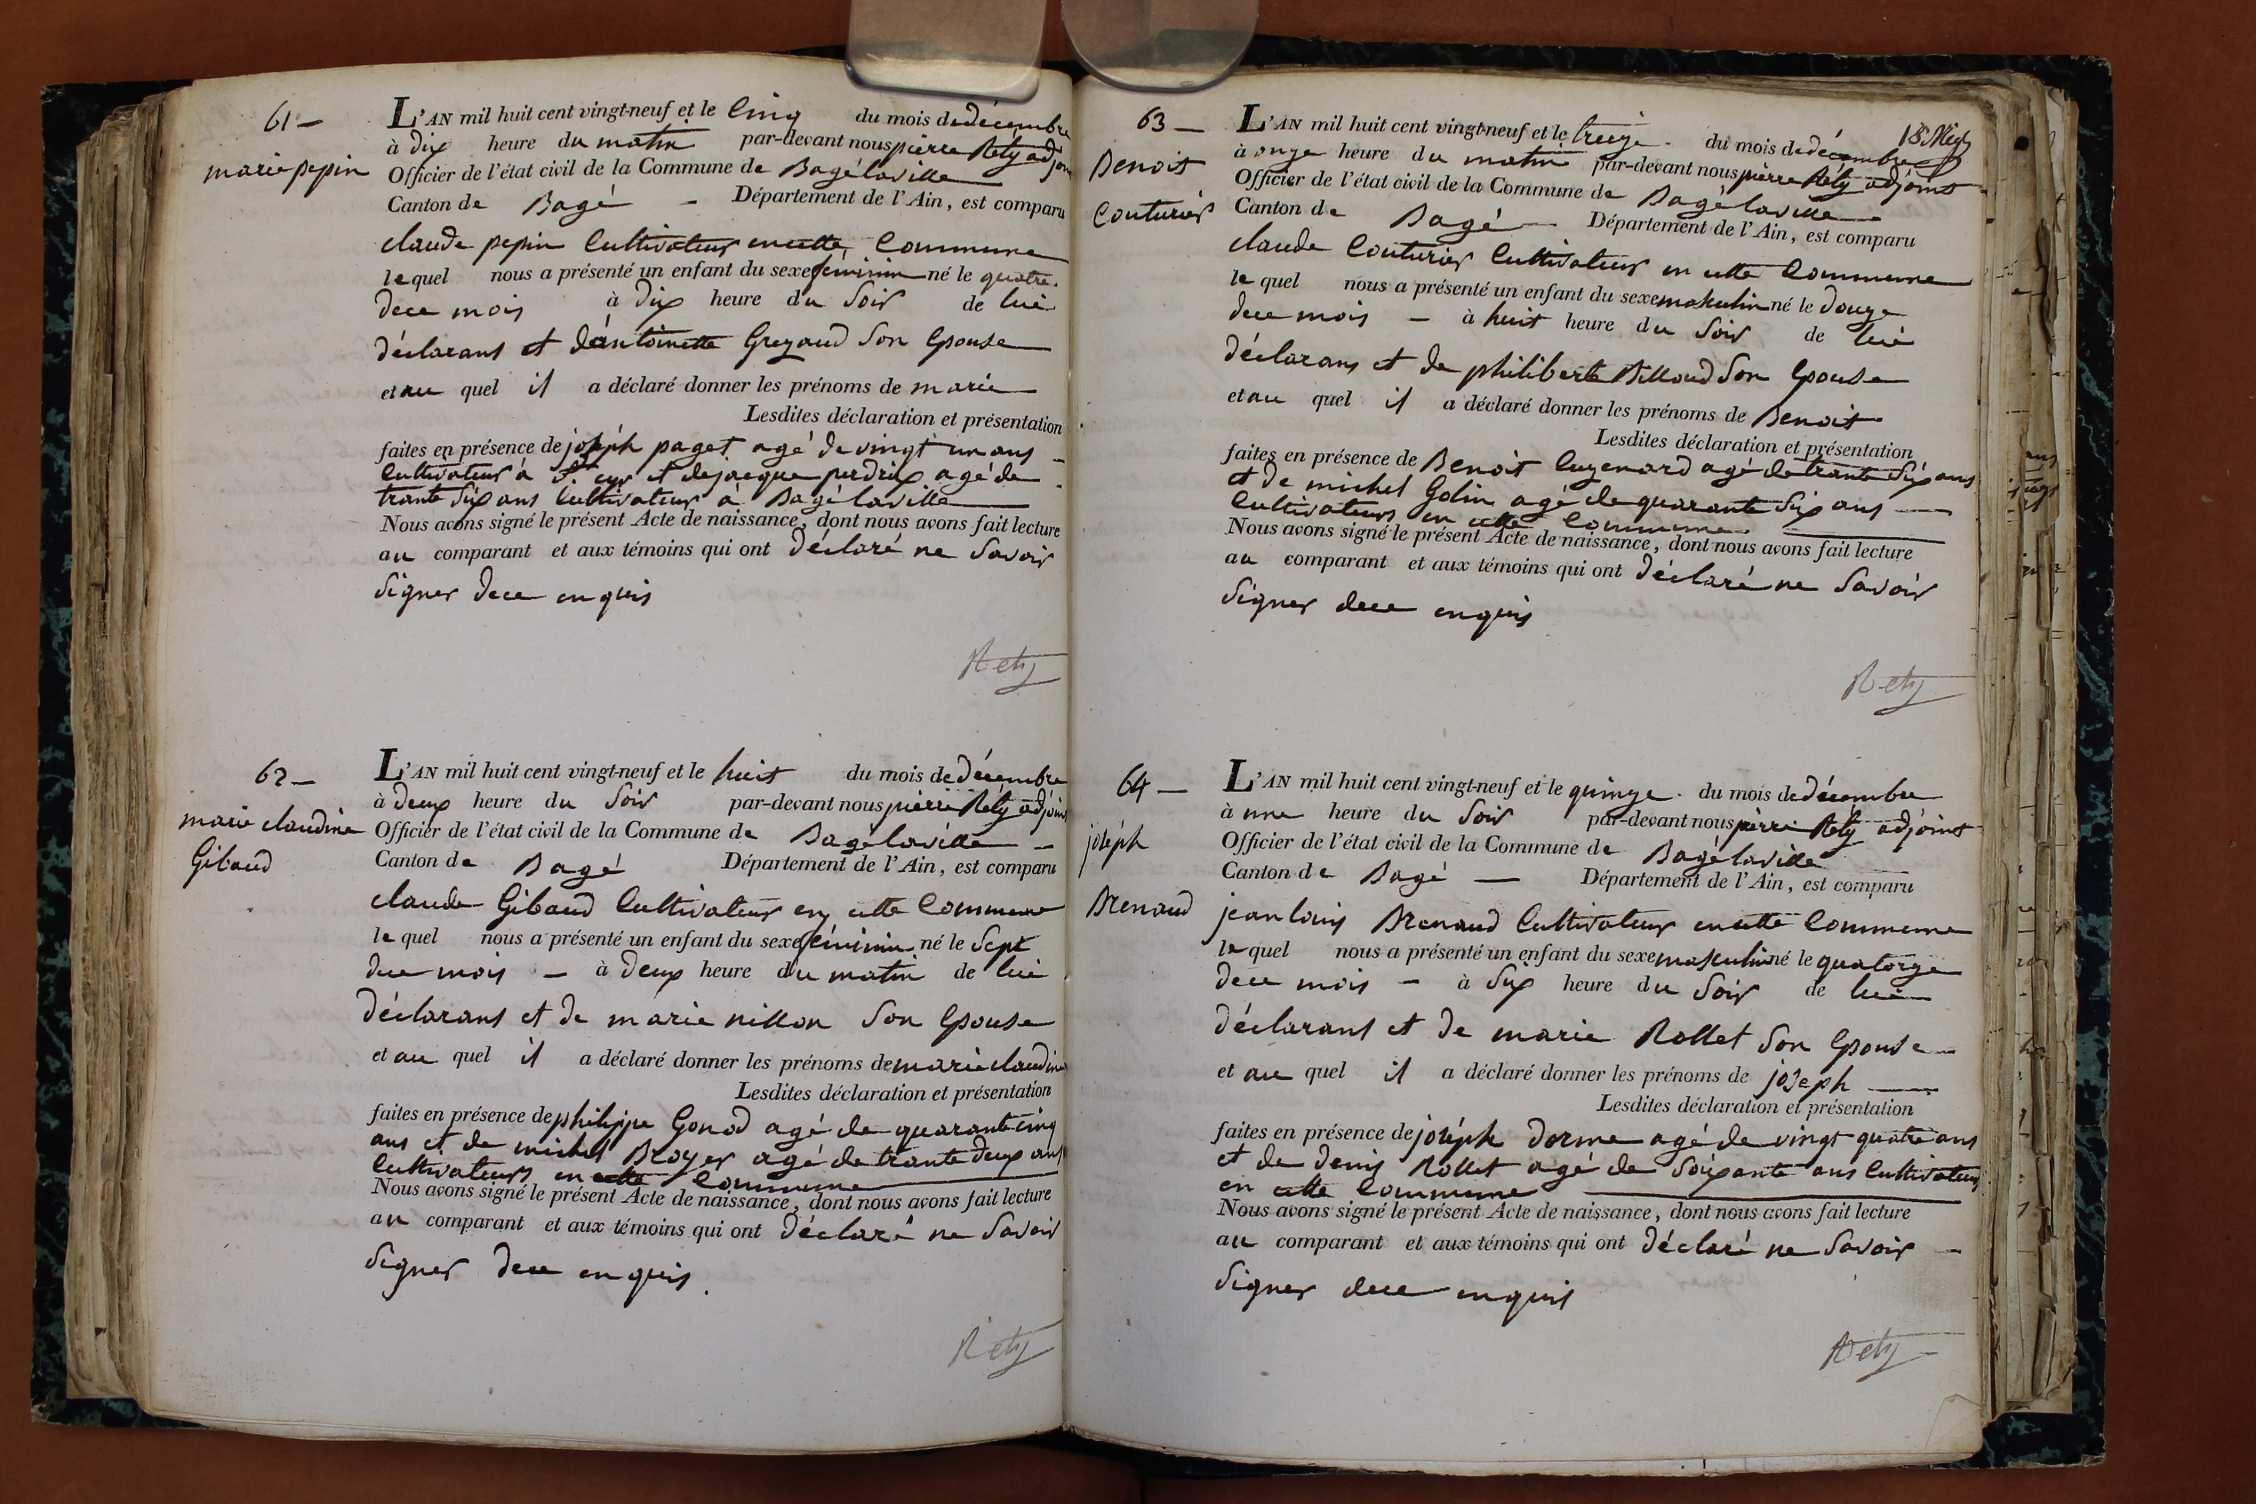 61 —
marie pepin
L'AN mil huit cent vingt-neuf et le Cinq du mois de décembre
à dix heure du matin par-devant nous pierre Rety adjoint
Officier de l'état civil de la Commune de Bagélaville
Canton de Bagé — Département de l'Ain, est comparu
claude pepin Cultivateur en cette Commune
le quel nous a présenté un enfant du sexe féminin né le quatre
dece mois à dix heure du Soir de lui
déclarans et d'antoinette Grezaud Son Epouse
et au quel il a déclaré donner les prénoms de marie
Lesdites déclaration et présentation
faites en présence de joséph paget agé de vingt un ans
Cultivateur à St. cyr et de jacque perdrix agé de
trante Six ans Cultivateur à Bagélaville
Nous avons signé le présent Acte de naissance, dont nous avons fait lecture
au comparant et aux témoins qui ont déclaré ne Savoir
Signer dece enquis
Rety
62 —
marie claudine
Gibaud
L'AN mil huit cent vingt-neuf et le huit du mois de décembre
à deux heure du Soir par-devant nous pierre Rety adjoint
Officier de l'état civil de la Commune de Bagélaville —
Canton de Bagé Département de l'Ain, est comparu
claude Gibaud Cultivateur en cette Commune
le quel nous a présenté un enfant du sexe féminin né le Sept
dece mois — à deux heure du matin de lui
déclarans et de marie nillon Son Epouse
et au quel il a déclaré donner les prénoms de marie claudine
Lesdites déclaration et présentation
faites en présence de philippe Gonod agé de quarante cinq
ans et de michel Broyer agé de trante deux ans
Cultivateurs en cette Commune
Nous avons signé le présent Acte de naissance, dont nous avons fait lecture
au comparant et aux témoins qui ont déclaré ne Savoir
Signer dece enquis.
Rety
63 —
Benoit
Couturier
L'AN mil huit cent vingt-neuf et le treize du mois de décembre
à onze heure du matin par-devant nous pierre Rety adjoint
Officier de l'état civil de la Commune de Bagélaville
Canton de Bagé — Département de l'Ain, est comparu
claude Couturier Cultivateur en cette Commune
le quel nous a présenté un enfant du sexe maskulin né le douze
dece mois — à huit heure du Soir de lui
déclarans et de philiberte Billoud Son Epouse
et au quel il a déclaré donner les prénoms de Benoit
Lesdites déclaration et présentation
faites en présence de Benoit Cuzenard agé de trante Six ans
et de michel Golin agé de quarante Six ans —
Cultivateurs en cette Commune
Nous avons signé le présent Acte de naissance, dont nous avons fait lecture
au comparant et aux témoins qui ont déclaré ne Savoir
Signer dece enquis
Rety
64 —
joséph
Brenaud
L'AN mil huit cent vingt-neuf et le quinze du mois de décembre
à une heure du Soir par-devant nous pierre Rety adjoint
Officier de l'état civil de la Commune de Bagélaville
Canton de Bagé — Département de l'Ain, est comparu
jean louis Brenaud Cultivateur en cette Commune
le quel nous a présenté un enfant du sexe masculin né le quatorze
dece mois — à Six heure du Soir de lui
déclarans et de marie Rollet Son Epouse
et au quel il a déclaré donner les prénoms de joseph
Lesdites déclaration et présentation
faites en présence de joséph dorme agé de vingt quatre ans
et de denis Rollet agé de Soixante ans Cultivateurs
en cette Commune
Nous avons signé le présent Acte de naissance, dont nous avons fait lecture
au comparant et aux témoins qui ont déclaré ne Savoir —
Signer dece enquis
Rety